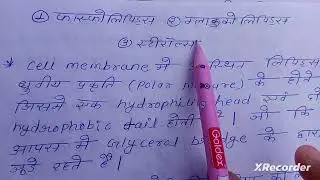 ① फास्फो लिपिड्स ② ग्लाइको लिपिड्स
③ स्टीरॉल्स
* Cell membrane में स्थित लिपिड
ध्रुवीय प्रकृति (Polar nature) के होते
जिसमें एक hydrophilic head एवं दो
hydrophobic tail होती है। जो कि
आपस में Glycerol bridge के द्वारा
जुड़े रहते हैं।
Goldex
XRecorder